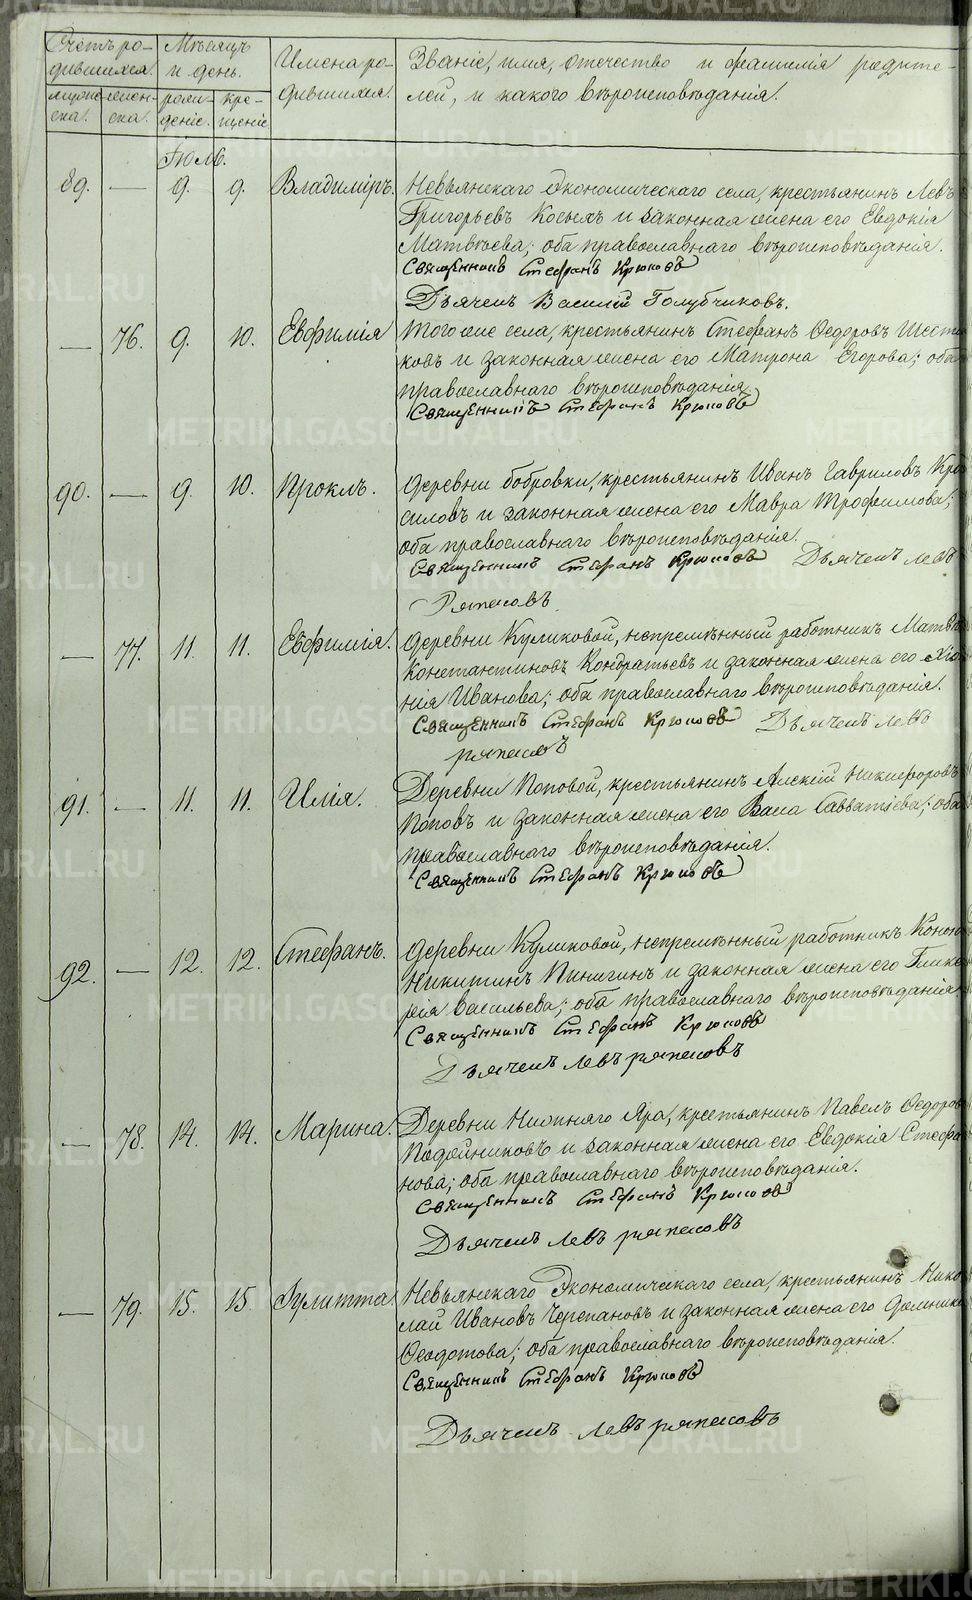 Счетъ ро-
дившихся.
Мѣсяцъ
и день.
Имена ро-
дившихся.
Званіе, имя, отечество и фамилія родите-
лей, и какого вѣроисповѣданія.
мужес-
ка.
женс-
ка.
рож-
деніе.
кре-
щеніе
Іюль.
89. — 9. 9. Владиміръ. Невьянскаго Экономическаго села, крестьянинъ Левъ
Григорьевъ Косыхъ и законная жена его Евдокія
Матвѣева; оба православнаго вѣроисповѣданія.
Священникъ Стефанъ Крюковъ
Дьячекъ Василій Голубчиковъ.
— 76. 9. 10. Евфимія Того же села, крестьянинъ Стефанъ Ѳедоровъ
ковъ и законная жена его Матрона Егорова; оба
православнаго вѣроисповѣданія
Священникъ Стефанъ Крюковъ
90. — 9. 10. Проклъ. Деревни Бобровки, крестьянинъ Иванъ Гавриловъ Кра
силовъ и законная жена его Мавра Трофимова;
оба православнаго вѣроисповѣданія.
Священникъ Стефанъ Крюковъ Дьячекъ Левъ
Ряпасовъ
— 77. 11. 11. Евфимія. Деревни Куликовой, непремѣнный работникъ Матвѣ
Константиновъ Кондратьевъ и законная жена его Хіо
нія Иванова; оба православнаго вѣроисповѣданія.
Священникъ Стефанъ Крюковъ Дьячекъ Левъ
Ряпасовъ
91. — 11. 11. Илія. Деревни Поповой, крестьянинъ Алексій Никифоровъ
Поповъ и законная жена его Васа Савватіева; оба
православнаго вѣроисповѣданія.
Священникъ Стефанъ Крюковъ
92. — 12. 12. Стефанъ. Деревни Куликовой, непремѣнный работникъ Конон
Никитинъ Пинигинъ и законная жена его Глике
рія Васильева; оба православнаго вѣроисповѣданія
Священникъ Стефанъ Крюковъ
Дьячекъ Левъ Ряпасовъ
— 78. 14. 14. Марина. Деревни Нижняго Яра, крестьянинъ Павелъ Ѳедоров
Подойниковъ и законная жена его Евдокія Стефа
нова; оба православнаго вѣроисповѣданія.
Священникъ Стефанъ Крюковъ
Дьячекъ Левъ Ряпасовъ
— 79. 15. 15. Іулитта. Невьянскаго Экономическаго села, крестьянинъ Нико
лай Ивановъ Черепановъ и законная жена его Домника
Ѳеодотова; оба православнаго вѣроисповѣданія.
Священникъ Стефанъ Крюковъ
Дьячекъ Левъ Ряпасовъ